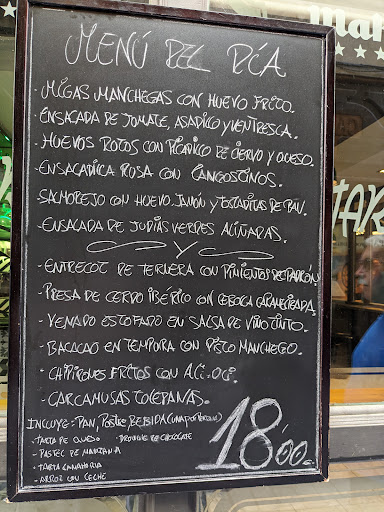 MENÚ DEL DÍA
- MIGAS MANCHEGAS CON HUEVO FRITO.
- ENSALADA DE TOMATE, ASADILLO Y VENTRESCA.
- HUEVOS ROTOS CON PICADILLO DE CIERVO Y QUESO.
- ENSALADILLA RUSA CON LANGOSTINOS.
- SALMOREJO CON HUEVO, JAMÓN Y TOSTADITAS DE PAN.
- ENSALADA DE JUDÍAS VERDES ALIÑADAS.
Y
- ENTRECOT DE TERNERA CON PIMIENTOS DE PADRÓN
- PRESA DE CERDO IBÉRICO CON CEBOLLA CARAMELIZADA
- VENADO ESTOFADO EN SALSA DE VINO TINTO.
- BACALAO EN TEMPURA CON PISTO MANCHEGO.
- CHIPIRONES FRITOS CON ALI-OLI.
- CARCAMUSAS TOLEDANAS.
INCLUYE:- PAN, POSTRE, BEBIDA (UNA POR PERSONA)
- TARTA DE QUESO - BROWNIE DE CHOCOLATE
- PASTEL DE MANZANA
- TARTA ZANAHORIA
- ARROZ CON LECHE
18'00.-